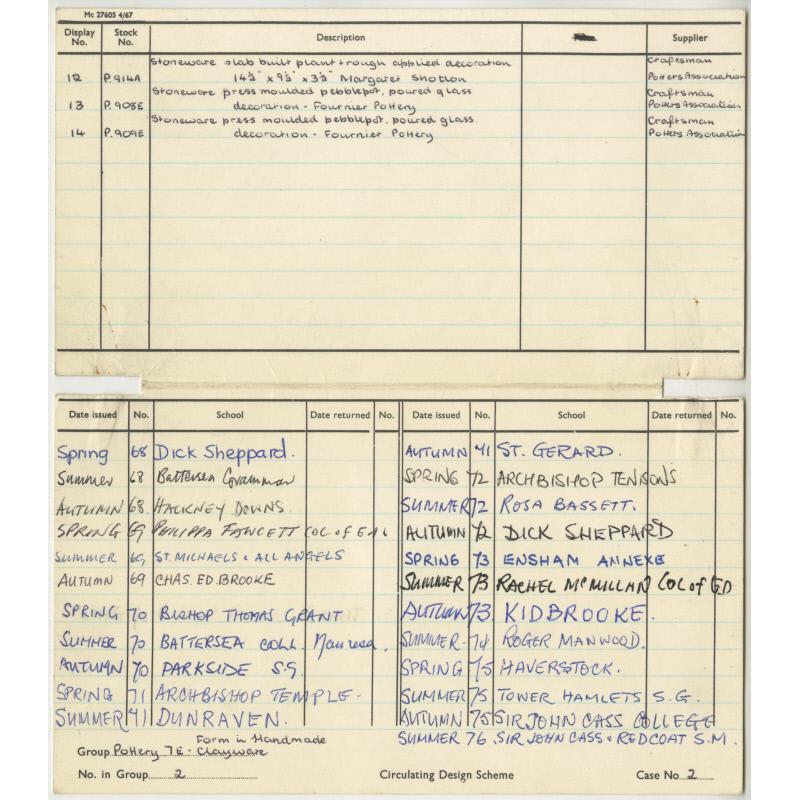 Mc 27605 4/67
Display No. Stock No. Description Supplier
Stoneware slab built plant trough applied decoration Craftsman
12 P.914A 14½" x 9½" x 3½" Margaret Shotton Potters Association
Stoneware press moulded pebblepot, poured glass Craftsman
13 P.908E decoration - Fournier Pottery Potters Association
Stoneware press moulded pebblepot, poured glass. Craftsman
14 P.909E decoration - Fournier Pottery Potters Association
Date issued No. School Date returned No. Date issued No. School Date returned No.
Spring 68 Dick Sheppard. AUTUMN 71 ST. GERARD.
Summer 68 Battersea Grammar SPRING 72 ARCHBISHOP TENISONS
AUTUMN 68. HACKNEY DOWNS. SUMMER 72 ROSA BASSETT.
SPRING 69 PHILIPPA FAWCETT COL OF ED. AUTUMN 72 DICK SHEPPARD
SUMMER 69 ST. MICHAELS & ALL ANGELS SPRING 73 ENSHAM ANNEXE
AUTUMN 69 CHAS. ED. BROOKE SUMMER 73 RACHEL McMILLAN COL of ED
SPRING 70 BISHOP THOMAS GRANT AUTUMN 73. KIDBROOKE.
SUMMER 70 BATTERSEA COLL. Manresa. SUMMER 74 ROGER MANWOOD.
AUTUMN 70 PARKSIDE S.G. SPRING 75 HAVERSTOCK.
SPRING 71 ARCHBISHOP TEMPLE. SUMMER 75 TOWER HAMLETS S.G.
SUMMER 71 DUNRAVEN. AUTUMN 75 SIR JOHN CASS COLLEGE
SUMMER 76 SIR JOHN CASS & REDCOAT S.M.
Form in Handmade
Group Pottery 7E - Clayware
No. in Group 2 Circulating Design Scheme Case No 2